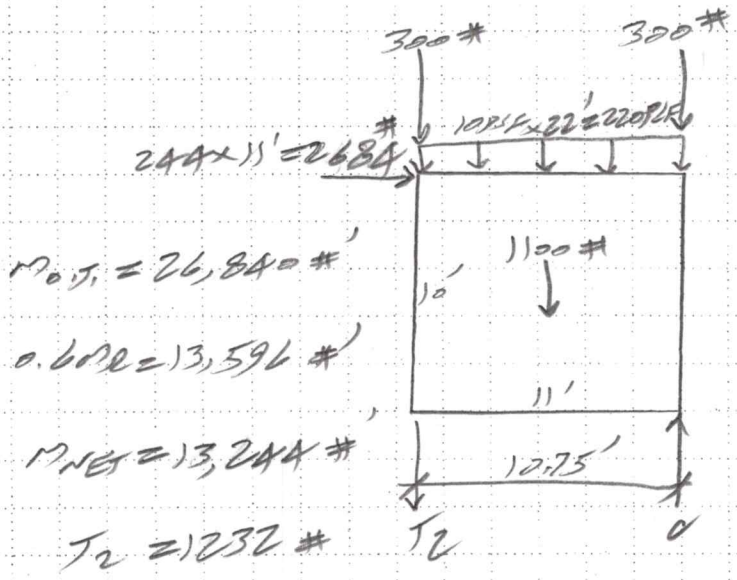 300# 300#
10PSF x 22' = 220PLF
244 x 11' = 2684#
Mo.T. = 26,840 #'
1100#
10'
0.6MR = 13,596 #'
11'
MNET = 13,244 #'
10.75'
T2 = 1232 #
T2 C